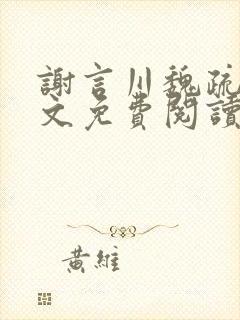 謝言川魏疏
文免費閱讀
黃維